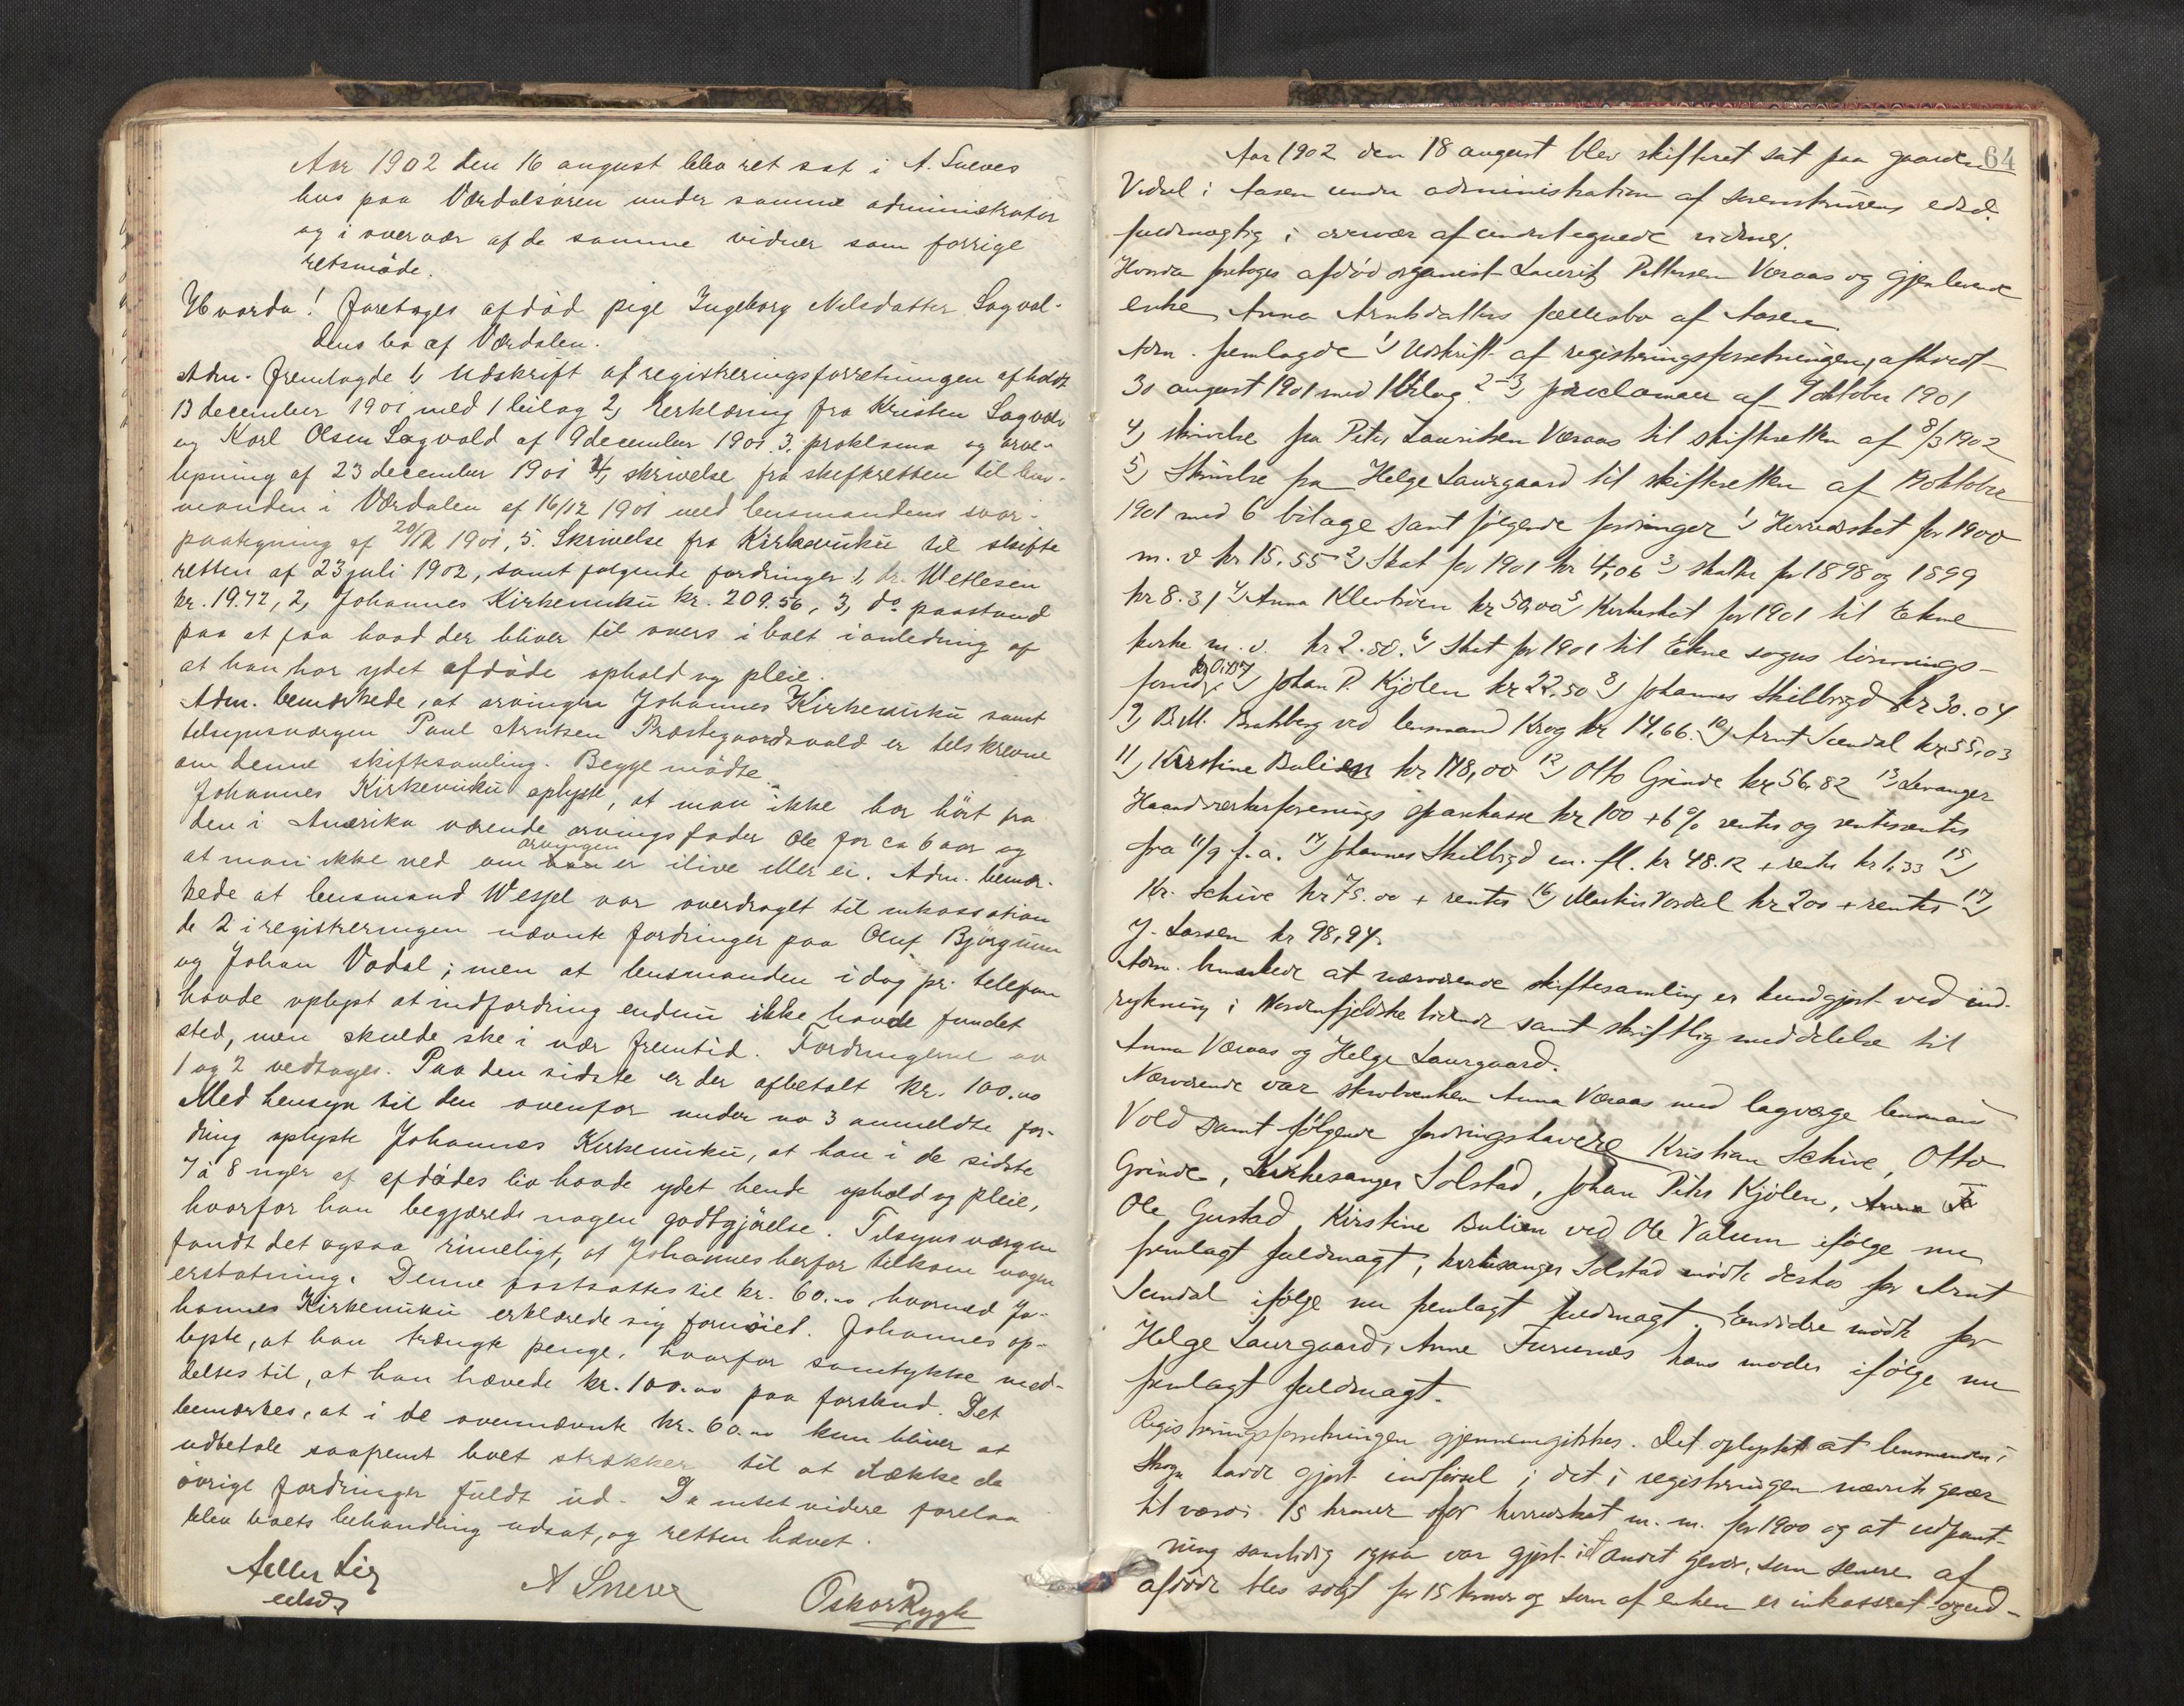 Aar 1902 den 16 august blev ret sat i A. Sneves
hus paa Værdalsøren under samme administrator
og i overvær af de samme vidner som forrige
retsmøde.
Hvorda! Foretages afdød pige Ingeborg Nilsdatter Sagvol-
dens bo af Værdalen.
Adm. fremlagde 1, Udskrift af registreringsforretningen afholdt
13 december 1901 med 1 bilag 2, Erklæring fra Kristen Sagvold
og Karl Olsen Sagvold af 9 december 1901. 3. proklama og arve-
lysning af 23 december 1901 4, skrivelse fra skifteretten til lens-
manden i Værdalen af 16/12 1901 med lensmandens svar-
paategning af 20/12 1901, 5. Skrivelse fra Kirkevuku til skifte
retten af 23 juli 1902, samt følgende fordringer 1, dr. Wetlesen
kr. 19.42, 2, Johannes Kirkevuku kr. 209.56, 3, do paastand
paa at faa hvad der bliver til overs i boet i anledning af
at han har ydet afdøde ophold og pleie.
Adm. bemærkede, at arvingen Johannes Kirkevuku samt
tilsynsværgen Paul Arntsen Præstegaardsvald er tilskrevne
om denne skiftesamling. Begge mødte.
Johannes Kirkevuku oplyste, at man ikke har hørt fra
den i Amerika værende arvings fader Ole for ca 6 aar og
at man ikke ved om arvingen er ilive eller ei. Adm. bemær-
kede at lensmand Wessel var overdraget til inkassation
de 2 i registreringen nævnte fordringer paa Oluf Bjørgum
og Johan Vodal; men at lensmanden idag pr. telefon
havde oplyst at indfordring endnu ikke havde fundet
sted, men skulde ske i nær fremtid. Fordringerne no
1 og 2 vedtages. Paa den sidste er der afbetalt kr. 100.00
Med hensyn til den ovenfor under no 3 anmeldte for-
dring oplyste Johannes Kirkevuku, at han i de sidste
7 à 8 uger af afdødes liv havde ydet hende ophold og pleie,
hvorfor han begjærede nogen godtgjørelse. Tilsynsværgen
fandt det ogsaa rimeligt, at Johannes herfor tilkom nogen
erstatning. Denne fastsattes til kr. 60.00 hvormed Jo-
hannes Kirkevuku erklærede sig fornøiet. Johannes op-
lyste, at han trængte penge, hvorfor samtykke med-
deltes til, at han hævede kr. 100.00 paa forskud. Det
bemærkes, at i de ovennævnte kr. 60.00 kun bliver at
udbetale saafremt boet strækker til at dække de
øvrige fordringer fuldt ud. Da intet videre forelaa
blev boets behandling udsat, og retten hævet.
Aller Lie
edsv
A Sneve
Oskar Rygh
64
Aar 1902 den 18 august blev skifteret sat paa gaarden
Vidal i Aasen under administration af sorenskriverens edsv.
fuldmægtig i overvær af undertegnede vidner.
Hvorda foretages afdød organist Laurits Pettersen Væraas og gjenlevende
enke Anna Arntsdatters fællesbo af Aasen.
Adm. fremlagde 1) Udskrift af registreringsforretningen, afholdt
30 august 1901 med 1 bilag 2-3) proclamaer af 9 oktober 1901
4) skrivelse fra Peter Lauritsen Væraas til skifteretten af 8/3 1902
5) Skrivelse fra Helge Laurgaard til skifteretten af 13 oktober
1901 med 6 bilage samt følgende fordringer 1) Herredsskat for 1900
m. v kr 15,55 2) Skat for 1901 kr 4,06 3) skatte for 1898 og 1899
kr 8.31 4) Anna Klevhaen kr 50,00 5) Kirkeskat for 1901 til Ekne
kirke m. v. kr 2.50. 6) Skat for 1901 til Ekne sogns lønnings-
fond 7) Johan P. Kjølen kr 22.50 8) Johannes Skilbrigd kr 30.04
9) B. M. Brahberg ved lensmand Krog kr 14,66. 10) Arnt Sundal kr 55,03
11) Kirstine Bulien kr 118,00 12) Otto Grinde kr 56,82 13) Levanger
Haandværkerforenings sparekasse kr 100 + 6 % renter og rentesrenter
fra 11/9 f.a. 14) Johannes Skilbrigd m. fl. kr 48.12 + rente kr 1,33 15)
Kr. Schive kr 75.00 + renter 16) Martin Vordal kr 200 + renter 17)
J. Larsen kr 98,94.
Adm. bemærkede at nærværende skiftesamling er kundgjort ved ind-
rykning i Nordenfjeldske tidende samt skriftlig meddelelse til
Anna Væraas og Helge Laurgaard.
Nærværende var skrobenken Anna Væraas med lagværge lensmand
Vold samt følgende fordringshavere Kristian Schive, Otto
Grinde, Kirkesanger Solstad, Johan Peter Kjølen,
Ole Gustad, Kirstine Bulien ved Ole Valum ifølge nu
fremlagt fuldmagt, kirkesanger Solstad mødte desuden for Arnt
Sundal ifølge nu fremlagt fuldmagt. Endvidere mødte for
Helge Laurgaard, Anne Furunes hans moder ifølge nu
fremlagt fuldmagt.
Registreringsforretningen gjennemgikkes. Det oplystes at lensmanden i
Skogn havde gjort indførsel i det i registreringen nævnte gevær
til værdi 15 kroner for herredsskat m. m. for 1900 og at udpant-
ning samtidig ogsaa var gjort i et andet gevær, som senere af
afdøde blev solgt for 15 kroner og som af enken er inkasseret og ud-